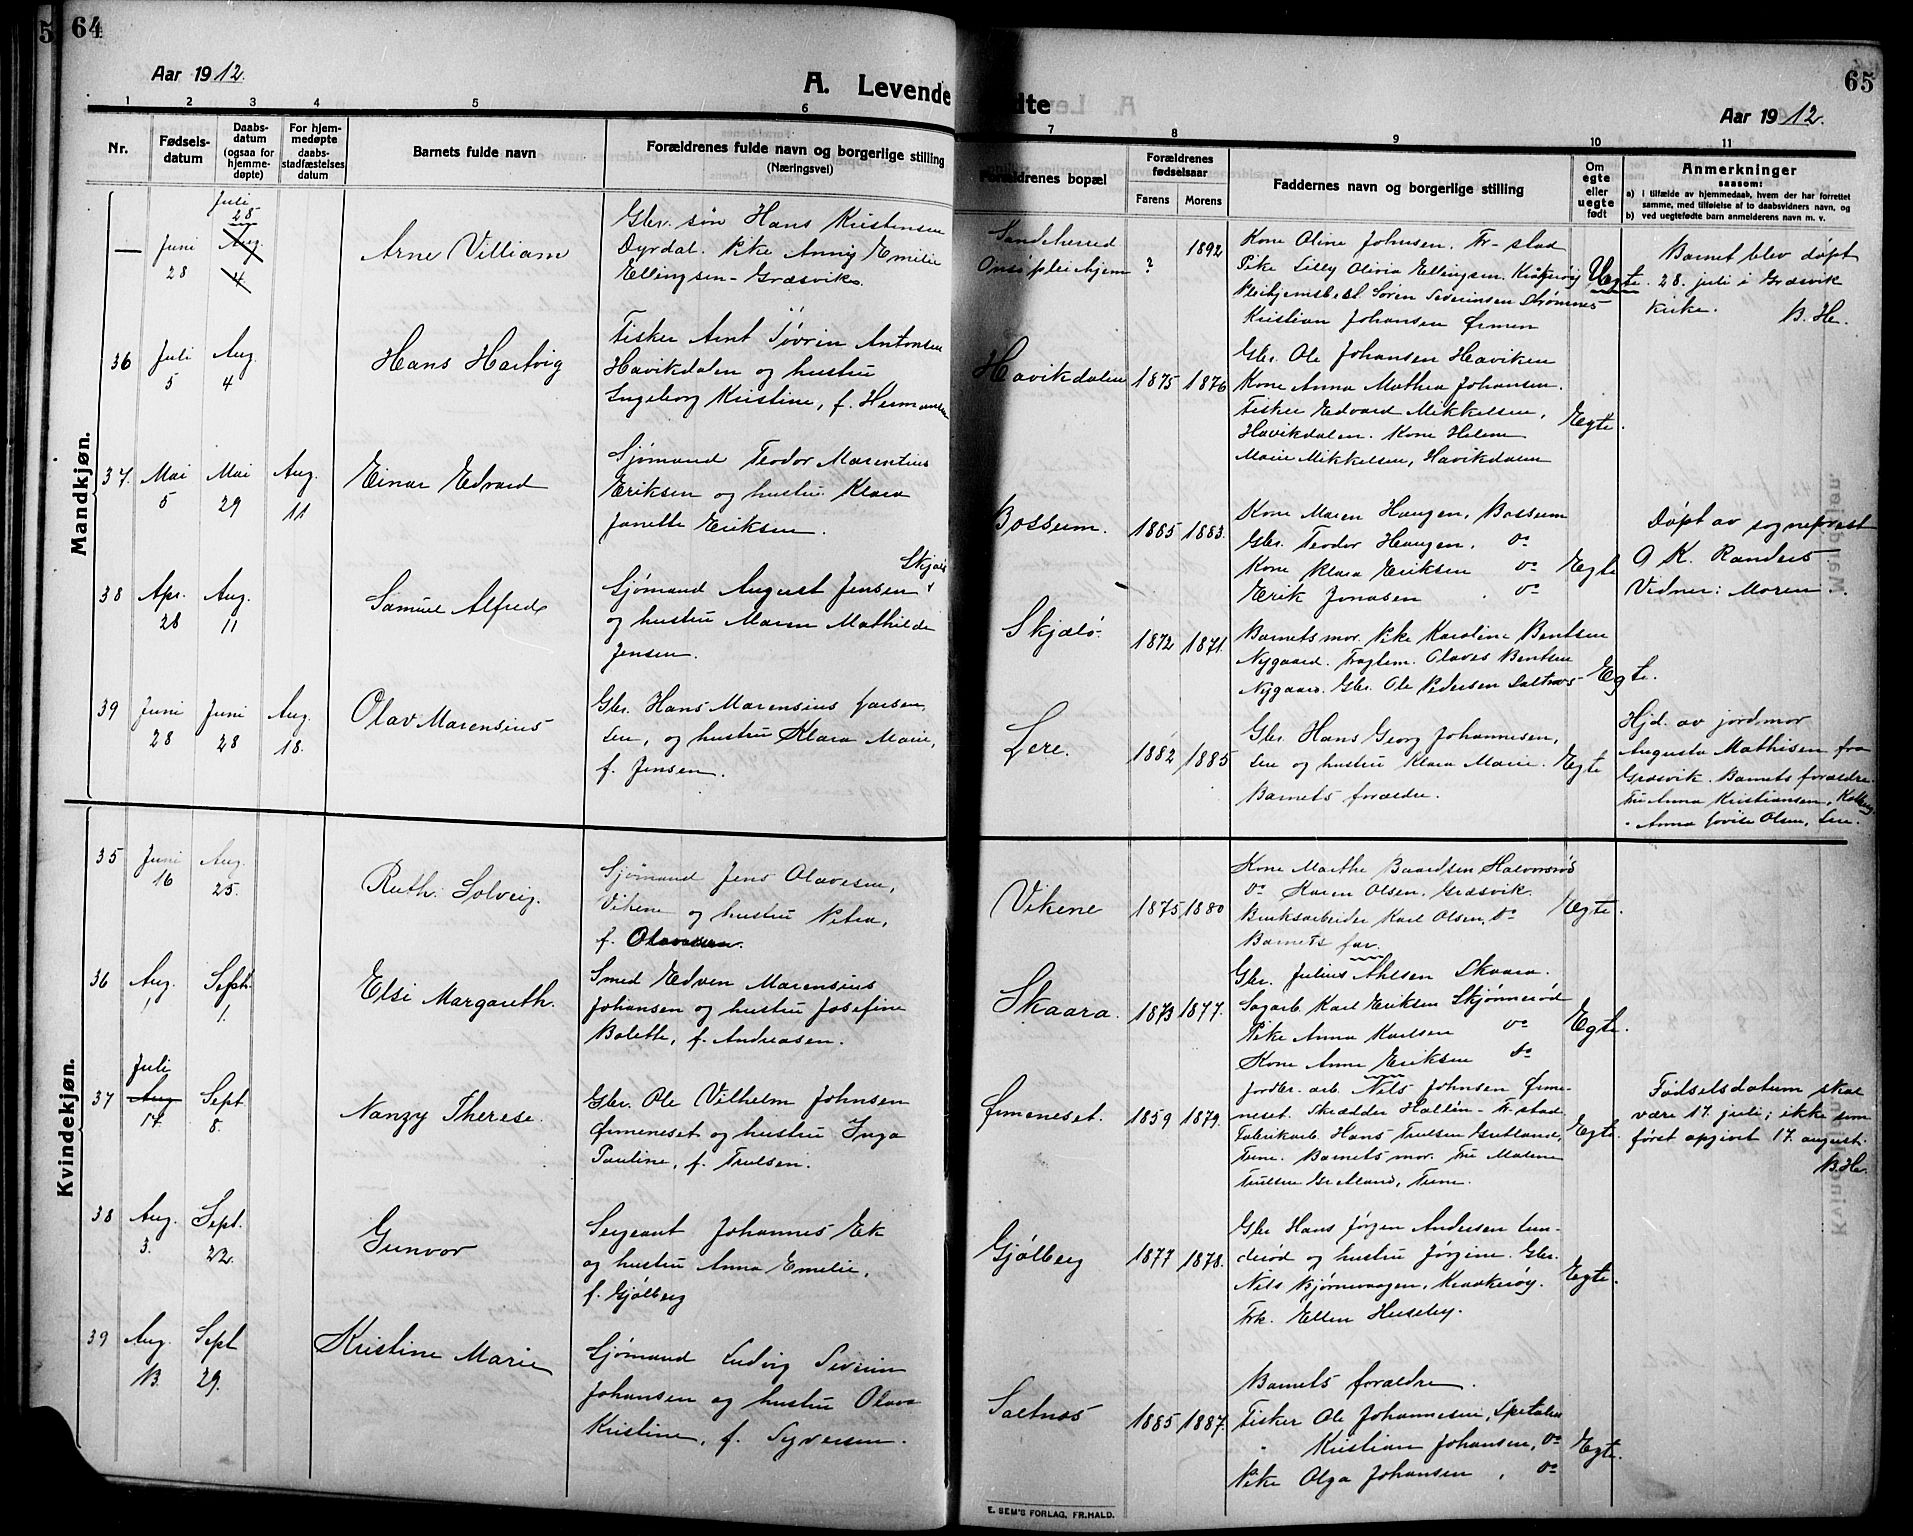 5 64
65
Aar 1912.
A. Levende
dte
Aar 1912.
1 2 3 4 5 6
7 8 9 10 11
Nr.
Fødsels-
datum
Daabs-
datum
(ogsaa for
hjemme-
døpte)
For hjem-
medøpte
daabs-
stadfæstelses
datum
Barnets fulde navn
Forældrenes fulde navn og borgerlige stilling
(Næringsvei)
Forældrenes bopæl
Forældrenes
fødselsaar
Farens Morens
Faddernes navn og borgerlige stilling
Om
egte
eller
uegte
født
Anmerkninger
saasom:
a) i tilfælde av hjemmedaab, hvem der har forrettet
samme, med tilføielse af to daabsvidners navn, og
b) ved uegtefødte barn anmelderens navn m. v.
Mandkjøn.
— Juni 28
Juli 28
Aug. 4
Arne Villiam
Gbr. søn Hans Kristensen
Dyrdal. Pike Anny Emilie
Ellingsen - Græsvik.
Sandeherred
Onsø pleiehjem ? 1892
Kone Oline Johnsen. Fr-stad
Pike Lilly Olivia Ellingsen. Kråkerøy
Pleihjemsbest. Søren Severinsen Strømnes
Kristian Johansen Ørmen
Uegte.
Barnet blev døpt
28. juli i Græsvik
kirke. B. He.
36 Juli 5 Aug. 4
Hans Hartvig
Fisker Arnt Søvrin Antonsen
Havikdalen og hustru
Ingeborg Kristine, f. Hermansen
Havikdalen 1875 1876
Gbr. Ole Johansen Haviken
Kone Anna Mathea Johansen.
Fisker Edvard Mikkelsen,
Havikdalen. Kone Helene
Marie Mikkelsen, Havikdalen
Egte.
37. Mai 5 Mai 29 Aug. 11
Einar Edvard
Sjømand Teodor Marentius
Eriksen og hustru Klara
Janette Eriksen.
Bossum. 1885 1883.
Kone Maren Haugen, Bossum
Gbr. Teodor Haugen, do
Kone Klara Eriksen do
Erik Jonasen do
Egte
Døpt av sogneprest
O K. Randers
Vidner: Moren
38 Apr. 28 Aug. 11
Samuel Alfred
Sjømand August Jensen Skjælø
og hustru Maren Mathilde
Jensen.
Skjælø. 1872 1871.
Barnets mor. Pike Karoline Bentsen
Nygaard. Fragtem. Olaves Bentsen
Nygaard. Gbr. Ole Pedersen Saltnes
Egte.
39 Juni 28 Juni 28 Aug. 18.
Olav Marensius
Gbr. Hans Marensius Larsen,
Lere, og hustru Klara Marie,
f. Jensen.
Lere. 1882 1885
Gbr. Hans Georg Johannesen,
Lere og hustru Klara Marie.
Barnets forældre.
Egte
Hjd. av jordmor
Augusta Mathisen fra
Græsvik. Barnets forældre.
Fru Anna Kristiansen,
" Anna Lovise Olsen, Lere.
Kvindekjøn.
35 Juni 16 Aug. 25.
Ruth Solveig.
Sjømand Jens Olavesen,
Vikene og hustru Petra,
f. Olavesen.
Vikene 1875 1880
Kone Marthe Baardsen Halvorsrød
do Karen Olsen, Græsvik.
Bruksarbeider Karl Olsen, do
Barnets far.
Egte.
36 Aug. 1 Sept. 1.
Elsi Margareth.
Smed Edven Marensius
Johansen og hustru Josefine
Bolette, f. Andreasen.
Skaara. 1873 1877.
Gbr. Julius Ahlsen Skaara.
Sagarb. Karl Eriksen Skjønnerød
Pike Anna Karlsen do
Kone Anne Eriksen do
Egte.
37 Juli Aug 17. Sept 8.
Nanzy Therese.
Gbr. Ole Vilhelm Johnsen
Ørmeneset og hustru Inga
Pauline, f. Trulsen.
Ørmeneset. 1859 1879.
Jordbr. arb. Nels Johnsen Ørme-
neset. Skrædder Hallén - Fr.stad
Fabrikarb. Hans Trulsen Gretland,
Tune. Barnets mor. Fru Malene
Trulsen Gretland, Tune.
Egte.
Fødselsdatum skal
være 17. juli; ikke som
først opgivet 17. august.
B. He.
38 Aug. 3. Sept. 22.
Gunvor
Sergeant Johannes Ek
og hustru Anna Emelie,
f. Gjølberg
Gjølberg 1877 1878.
Gbr Hans Jørgen Andersen Lun-
derød og hustru Jørgine. Gbr.
Nils Bjørnevaagen, Kraakerøy.
Frk. Ellen Huseby.
Egte.
39 Aug. 13. Sept 29.
Kristine Marie
Sjømand Ludvig Severin
Johansen og hustru Olava
Kristine, f. Syversen.
Saltnæs 1885 1887.
Barnets forældre.
Fisker Ole Johannesen, Spetalen
" Kristian Johansen, do
Pike Olga Johansen, do
Egte.
E. SEM'S FORLAG, FR.HALD.